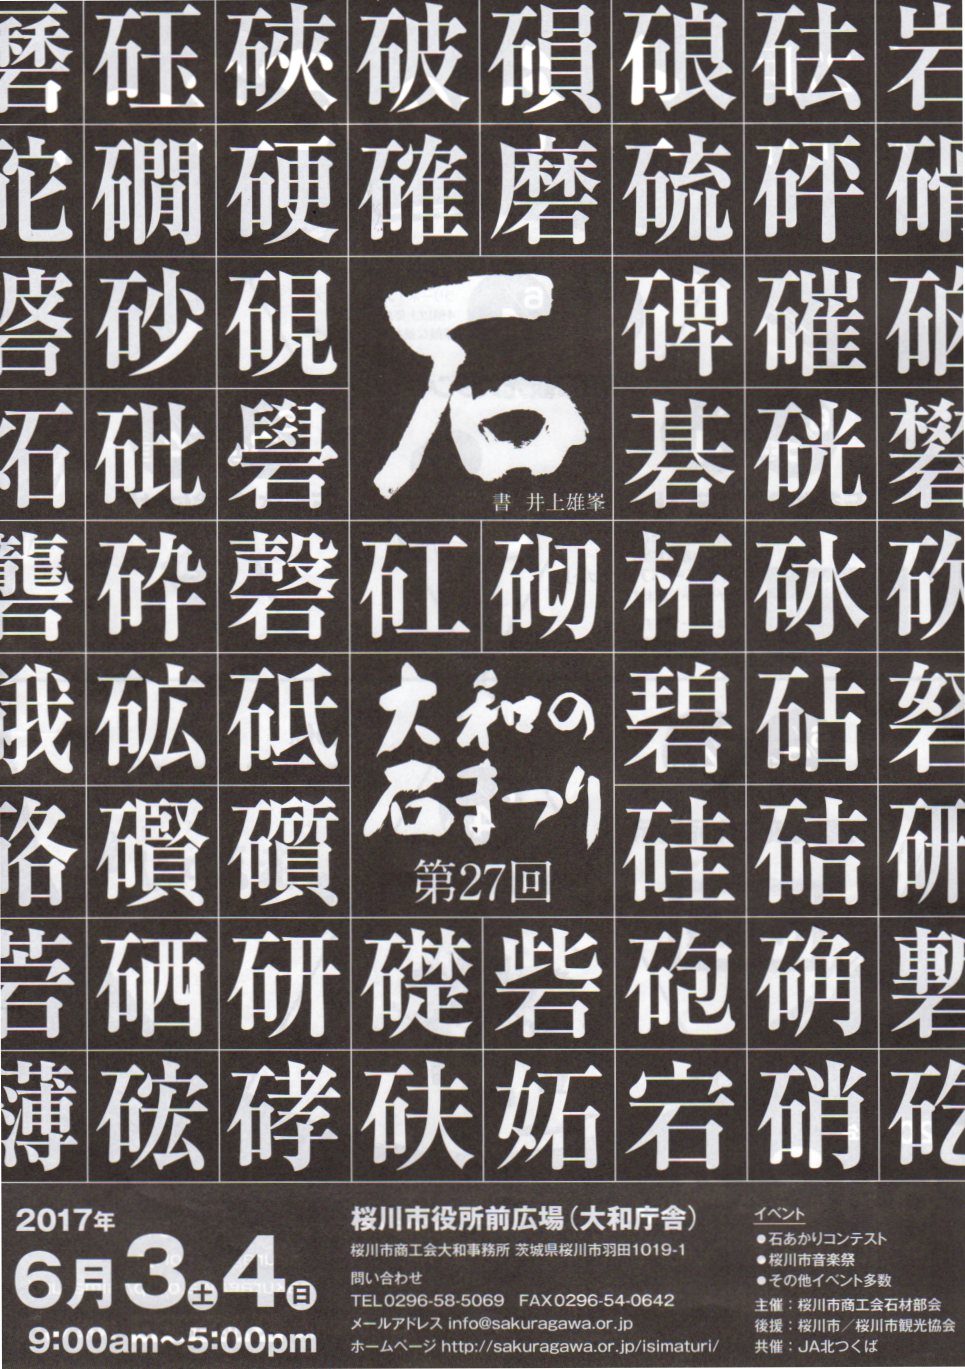 砡 硤 破 磒 硠 砝 岩
硬 確 磨 硫 砰
砂 硯 碑 磪
石 砒 礐 碁 硄 礬
石
書 井上雄峯
礱 砕 磬 矼 砌 柘 砅 砍
硪 砿 砥 碧 砧 砮
硌 礥 礩 硅 硈 研
大和の
石まつり
第27回
硒 研 礎 砦 砲 确
礴 硣 砆 妬 宕 硝
2017年
6月3土4日
9:00am〜5:00pm
桜川市役所前広場(大和庁舎)
桜川市商工会大和事務所 茨城県桜川市羽田1019-1
問い合わせ
TEL0296-58-5069 FAX0296-54-0642
メールアドレス info@sakuragawa.or.jp
ホームページ http://sakuragawa.or.jp/isimaturi/
イベント
●石あかりコンテスト
●桜川市音楽祭
●その他イベント多数
主催:桜川市商工会石材部会
後援:桜川市/桜川市観光協会
共催:JA北つくば